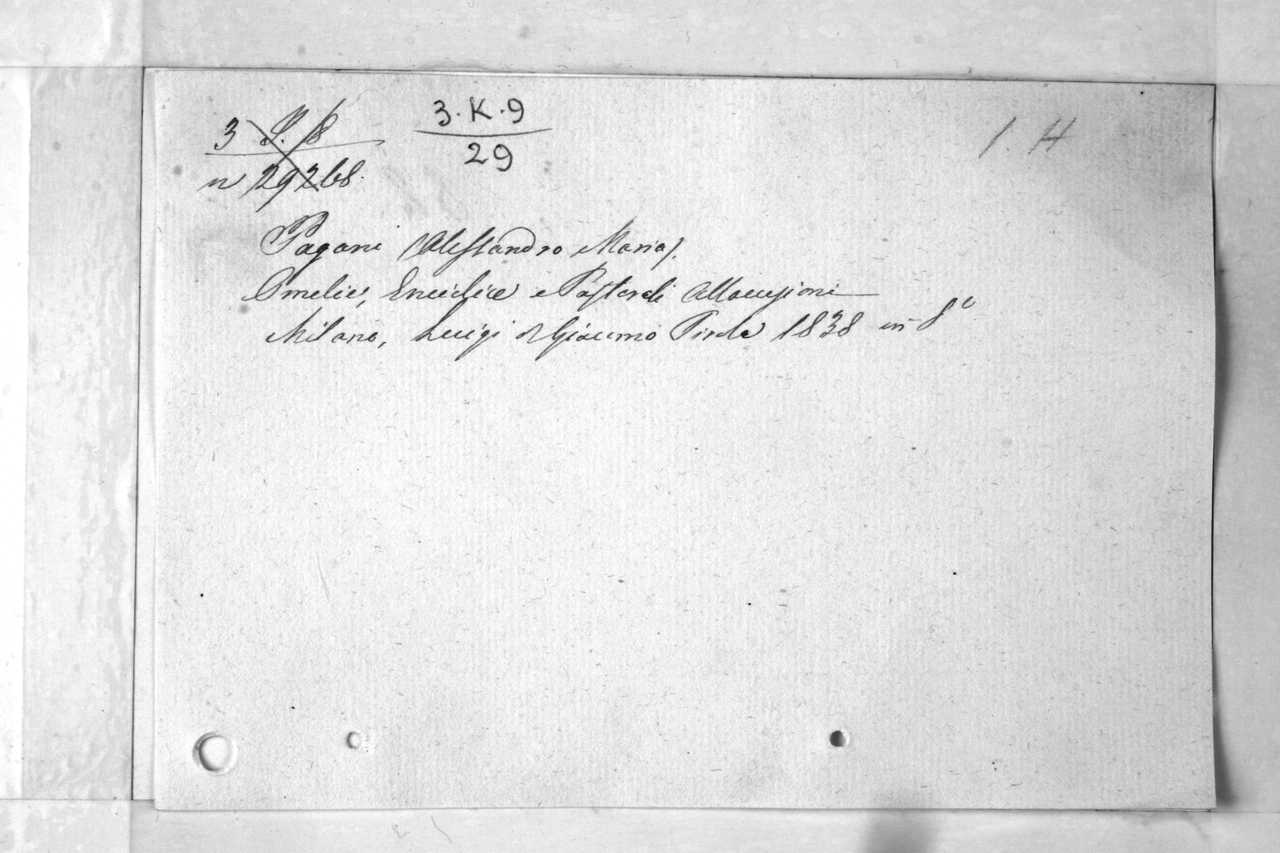 3 S. 8
3·K·9
29
1. H
n 29268.
Pagani (Alessandro Maria).
Omelie, Encicliee e Pastorali Allocuzioni
Milano, Luigi di Giacomo Pirola 1838 in 8º